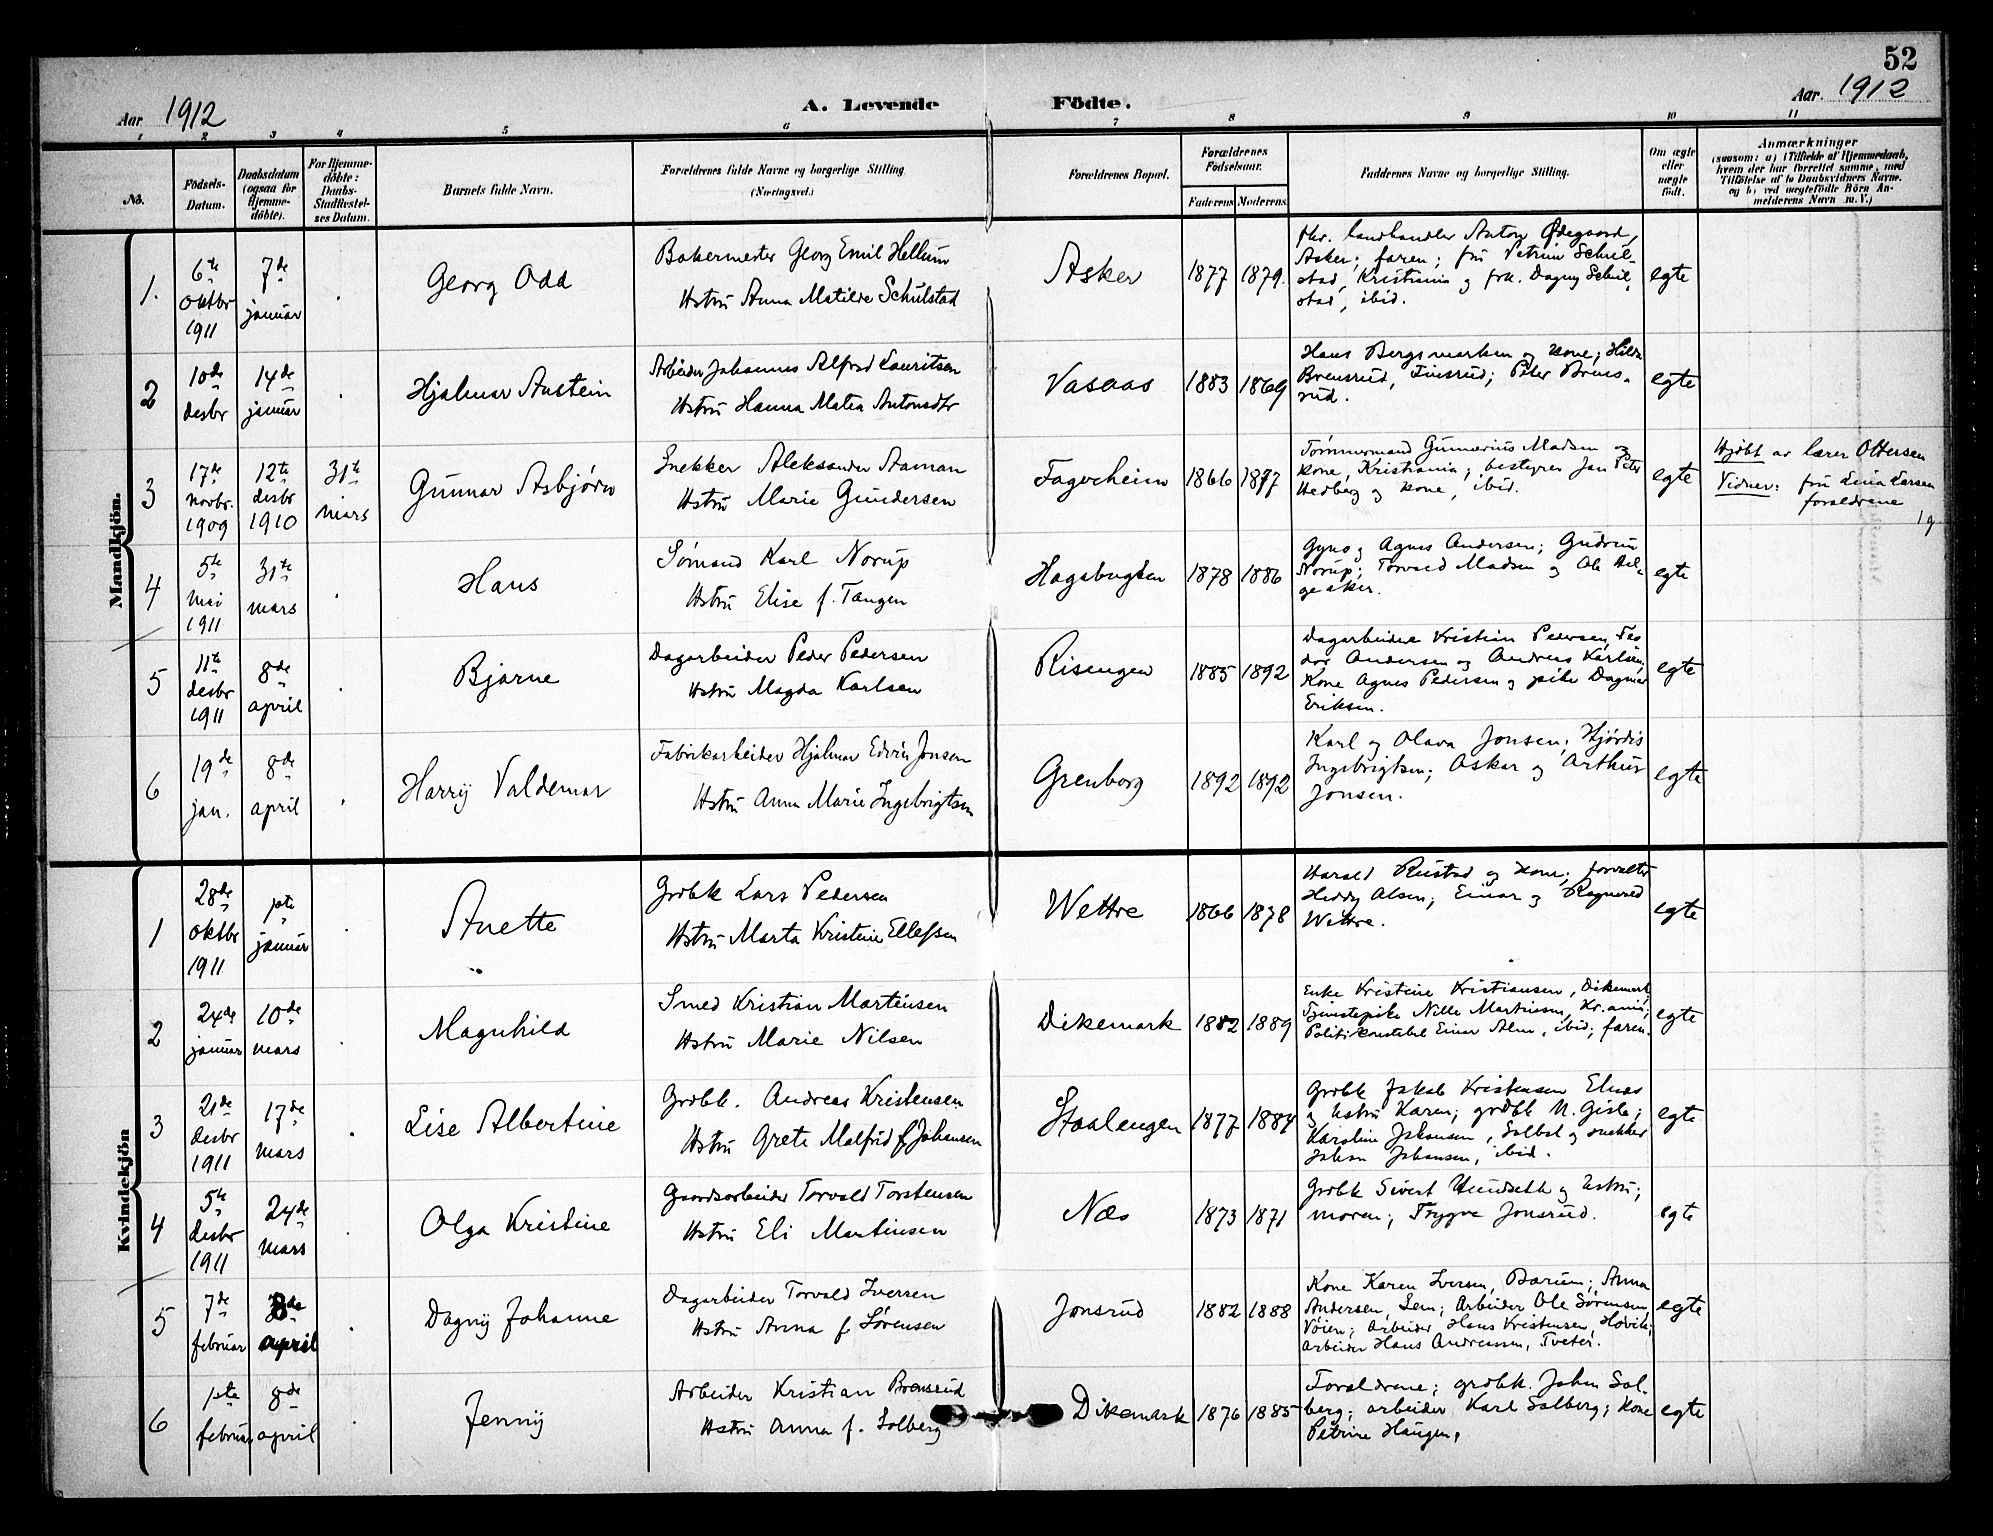 52
Aar 1912 A. Levende Födte. Aar. 1912
1 2 3 4 5 6 7 8 9 10 11
No.
Födsels-
Datum.
Daabsdatum
(ogsaa for
Hjemme-
döbte).
For Hjemme-
döbte:
Daabs-
Stadfæstel-
ses Datum.
Barnets fulde Navn.
Forældrenes fulde Navne og borgerlige Stilling
(Næringsvei.)
Forældrenes Bopæl.
Forældrenes
Födselsaar.
Faderens Moderens
Faddernes Navne og borgerlige Stilling.
Om ægte
eller
uægte
födt.
Anmærkninger
(saasom: a) i Tilfælde af Hjemmedaab,
hvem der har forrettet samme, med
Tilföielse af to Daabsvidners Navne,
og b) ved uægtefödte Börn An-
melderens Navn m. V.)
Mandkjön.
1. 6te oktbr 1911
7de januar
Georg Odd
Bakermester Georg Emil Hellum
Hstru Anna Matilde Schulstad
Asker
1877 1879
fhv. landhandler Anton Ødegaard,
Asker; faren; fru Petrine Schul-
stad, Kristiania og frk. Dagny Schul-
stad, ibid.
egte
2 10de desbr
14de januar
Hjalmar Austein
Arbeider Johannes Alfred Lauritsen
Hstru Hanna Matea Antonsdtr
Vasaas
1883 1869
Hans Bergsmarken og kone; Hilda
Brensrud, Finsrud; Peter Brens-
rud.
egte
3 17de novbr. 1909
12te desbr 1910
31te mars
Gunnar Asbjørn
Snekker Aleksander Aaman
Hstru Marie Gundersen
Fagerheim
1866 1877
Tømmermand Gunnerius Madsen og
kone, Kristiania; bestyrer Jan Peter
Hedberg og kone, ibid.
egte
Hjdbt av lærer Ottersen
Vidner: fru Lina Larsen
forældrene
4 5te mai 1911
31te mars
Hans
Sømand Karl Norup
Hstru Elise f. Tangen
Hagabugten
1878 1886
Agnes Andersen; Gudrun
Norup; Torvald Madsen og Ole Hel-
geaker.
egte
5 11te desbr 1911
8de april
Bjarne
Dagarbeider Peder Pedersen
Hstru Magda Karlsen
Risengen
1885 1892
Dagarbeidere Kristian Pedersen, Teo
dor Andersen og Andreas Karlsen,
Kone Agnes Pedersen og pike Dagmar
Eriksen.
egte
6 19de jan.
8de april
Harry Valdemar
Fabrikarbeider Hjalmar Edvin Jonsen
Hstru Anna Marie Ingebrigtsen
Grenborg
1892 1892
Karl og Olava Jonsen; Hjørdis
Ingebrigtsen; Oskar og Arthur
Jonsen.
egte
Kvindekjön
1 28de oktbr 1911
1ste januar
Anette
Grdbk Lars Pedersen
Hstru Marta Kristine Ellefsen
Wettre
1866 1878
Harald Rustad og kone; forvalter
Heddy Olsen; Einar og Ragnvald
Wettre.
egte
2 24de januar
10de mars
Magnhild
Smed Kristian Martinsen
Hstru Marie Nilsen
Dikemark
1882 1889
Enke Kristine Kristiansen, Dikemark,
Tjenestepike Nille Martinsen, Kr.ania;
Politikonstabel Einar Alm, ibid; faren.
egte
3 21de desbr 1911
17de mars
Lise Albertine
Grdbk. Andreas Kristensen
Hstru Grete Malfrid f. Johansen
Staalengen
1877 1884
Grdbk Jakob Kristensen Elnes
og hstru Karen; grdbk N. Gisle;
Karoline Johansen, Solbel og snekker
Johan Johansen, ibid.
egte
4 5te desbr 1911
24de mars
Olga Kristine
Gaardsarbeider Torvald Torstensen
Hstru Eli Martinsen
Næs
1873 1871
Grdbk Sivert Hundseth og hstru;
moren; Trygve Jonsrud.
egte
5 7de februar
8de april
Dagny Johanne
Dagarbeider Torvald Iversen
Hstru Anna f. Sørensen
Jonsrud
1882 1888
Kone Karen Iversen, Bærum; Anna
Andersen, Sem; Arbeider Ole Sørensen,
Vøien; arbeider Hans Kristensen, Høvik;
arbeider Hans Andreassen, Tveter.
egte
6 1ste februar
8de april
Jenny
Arbeider Kristian Brensrud
Hstru Anna f. Solberg
Dikemark
1876 1885
Forældrene; grdbk. Johan Sol-
berg; arbeider Karl Solberg; kone
Petrine Haugen.
egte